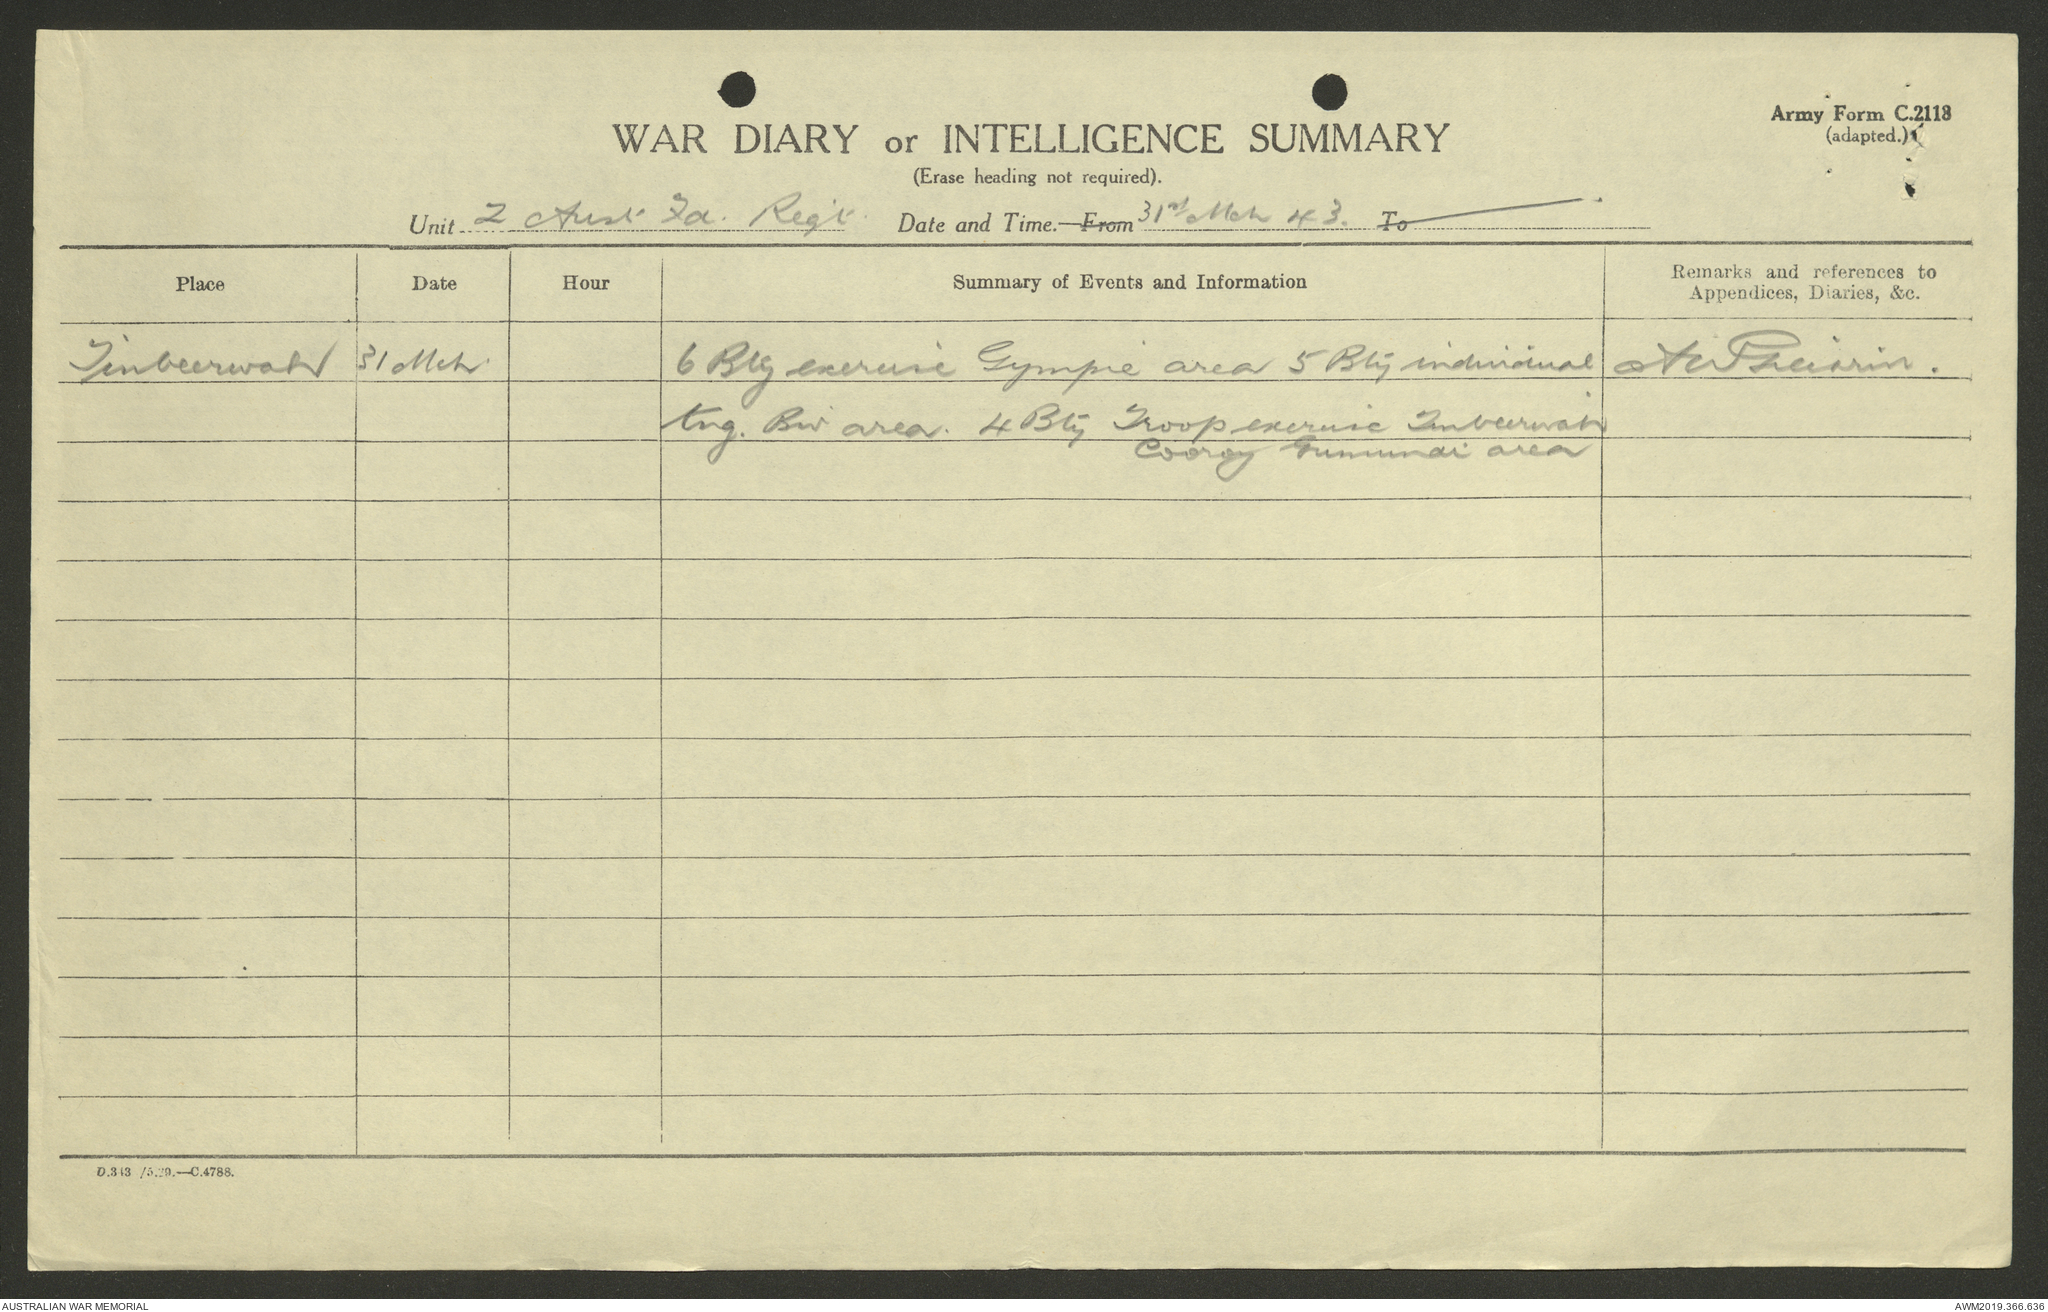 Army Form C.2118
(adapted.)
WAR DIARY or INTELLIGENCE SUMMARY
(Erase heading not required).
Unit 2 Aust Fd. Regt. Date and Time. From 31st Mch 43. To
Place Date Hour Summary of Events and Information Remarks and references to Appendices, Diaries, &c.
Tinbeerwah 31 Mch 6 Bty exercise Gympie area 5 Bty individual
tng. Biv area. 4 Bty Troop exercise Tinbeerwah
Cooroy Eumundi area
D.343 /5.39.—C.4788.
AUSTRALIAN WAR MEMORIAL
AWM2019.366.636